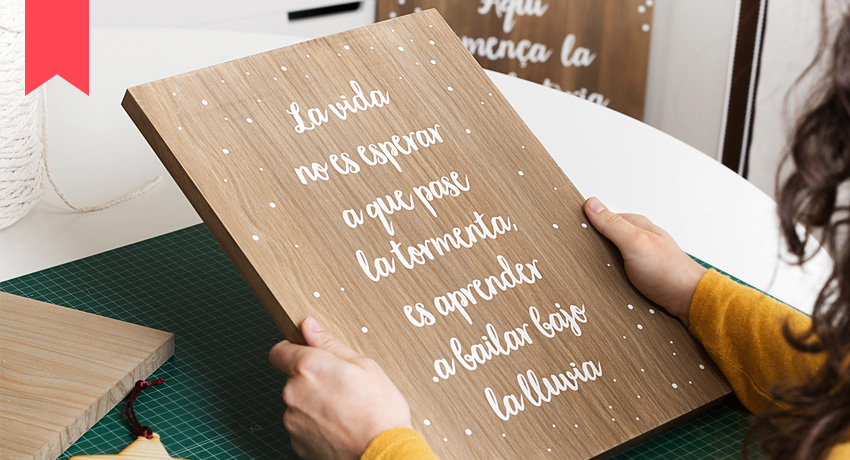 Aquí
mença la
La vida
no es esperar
a que pase
la tormenta,
es aprender
a bailar bajo
la lluvia